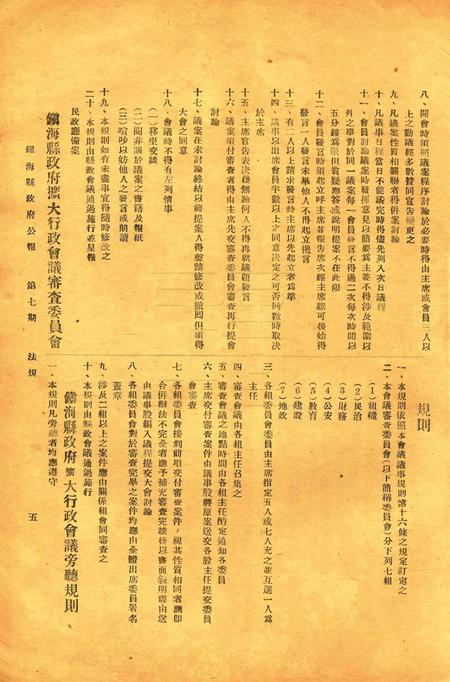 八、開會時須照議案程序討論於必要時得由主席或會員三人以
上之動議經多數贊同宣告變更之
九、凡議案性質相關聯者得併案討論
十、凡議事日程當日不能議完時得儘先列入次日議程
十一、會員討論議案時發揮意見以簡要為主並不得涉及範圍以
外之事對於同一議案每一會員發言不得過二次每次時間以
五分鐘為限但質疑應答或說明提案不在此限
十二、會員發言時須起立呼主席並報告席次經主席認可後始得
發言一人發言未畢他人不得起立攙言
十三、有二人以上請求發言時主席以先起立者為準
十四、議事以出席會員半數以上之同意決定之可否同數時取決
於主席
十五、主席宣告表決後無論何人不得再就議題發言
十六、議案須付審查者得由主席先交審查委員會審查再行提會
討論
十七、議案在未討論終結以前提案人得聲請修改或撤回但須得
大會之同意
十八、會議時不得有左列情事
（一）移坐交談
（二）閱非關於議案之書籍及報紙
（三）喧吵以妨他人之發言或朗讀
十九、本規則如有未盡事宜得隨時修改之
二十、本規則由縣政會議通過施行並呈報
民政廳備案
鎮海縣政府擴大行政會議審查委員會
規則
一、本規則依照本會議議事規則第十六條之規定訂定之
二、本會議審查委員會（以下簡稱委員會）分下列七組
（1）組織
（2）民治
（3）財務
（4）公安
（5）教育
（6）建設
（7）地政
三、各組委員會委員由主席指定五人或七人充之並互選一人為
主任
四、審查會議由各組主任召集之
五、審查會議之地點時間由各組主任酌定通知各委員
六、主席交付審查案件由議事股將原案送交各股主任提交委員
會審查
七、各組委員會接到前項交付審查案件，視其性質相同者應即
合併辦法不完全者應予補充審查完竣後以書面敍明理由送
由議事股編入議程提交大會討論
八、各組委員會對於審查完畢之案件均應由全體出席委員署名
蓋章
九、涉及二組以上之案件應由關係組會同審查之
十、本規則由縣政會議通過施行
鎮海縣政府擴大行政會議旁聽規則
一、本規則凡旁聽者均應遵守
鎮海縣政府公報　第七期　法規
五